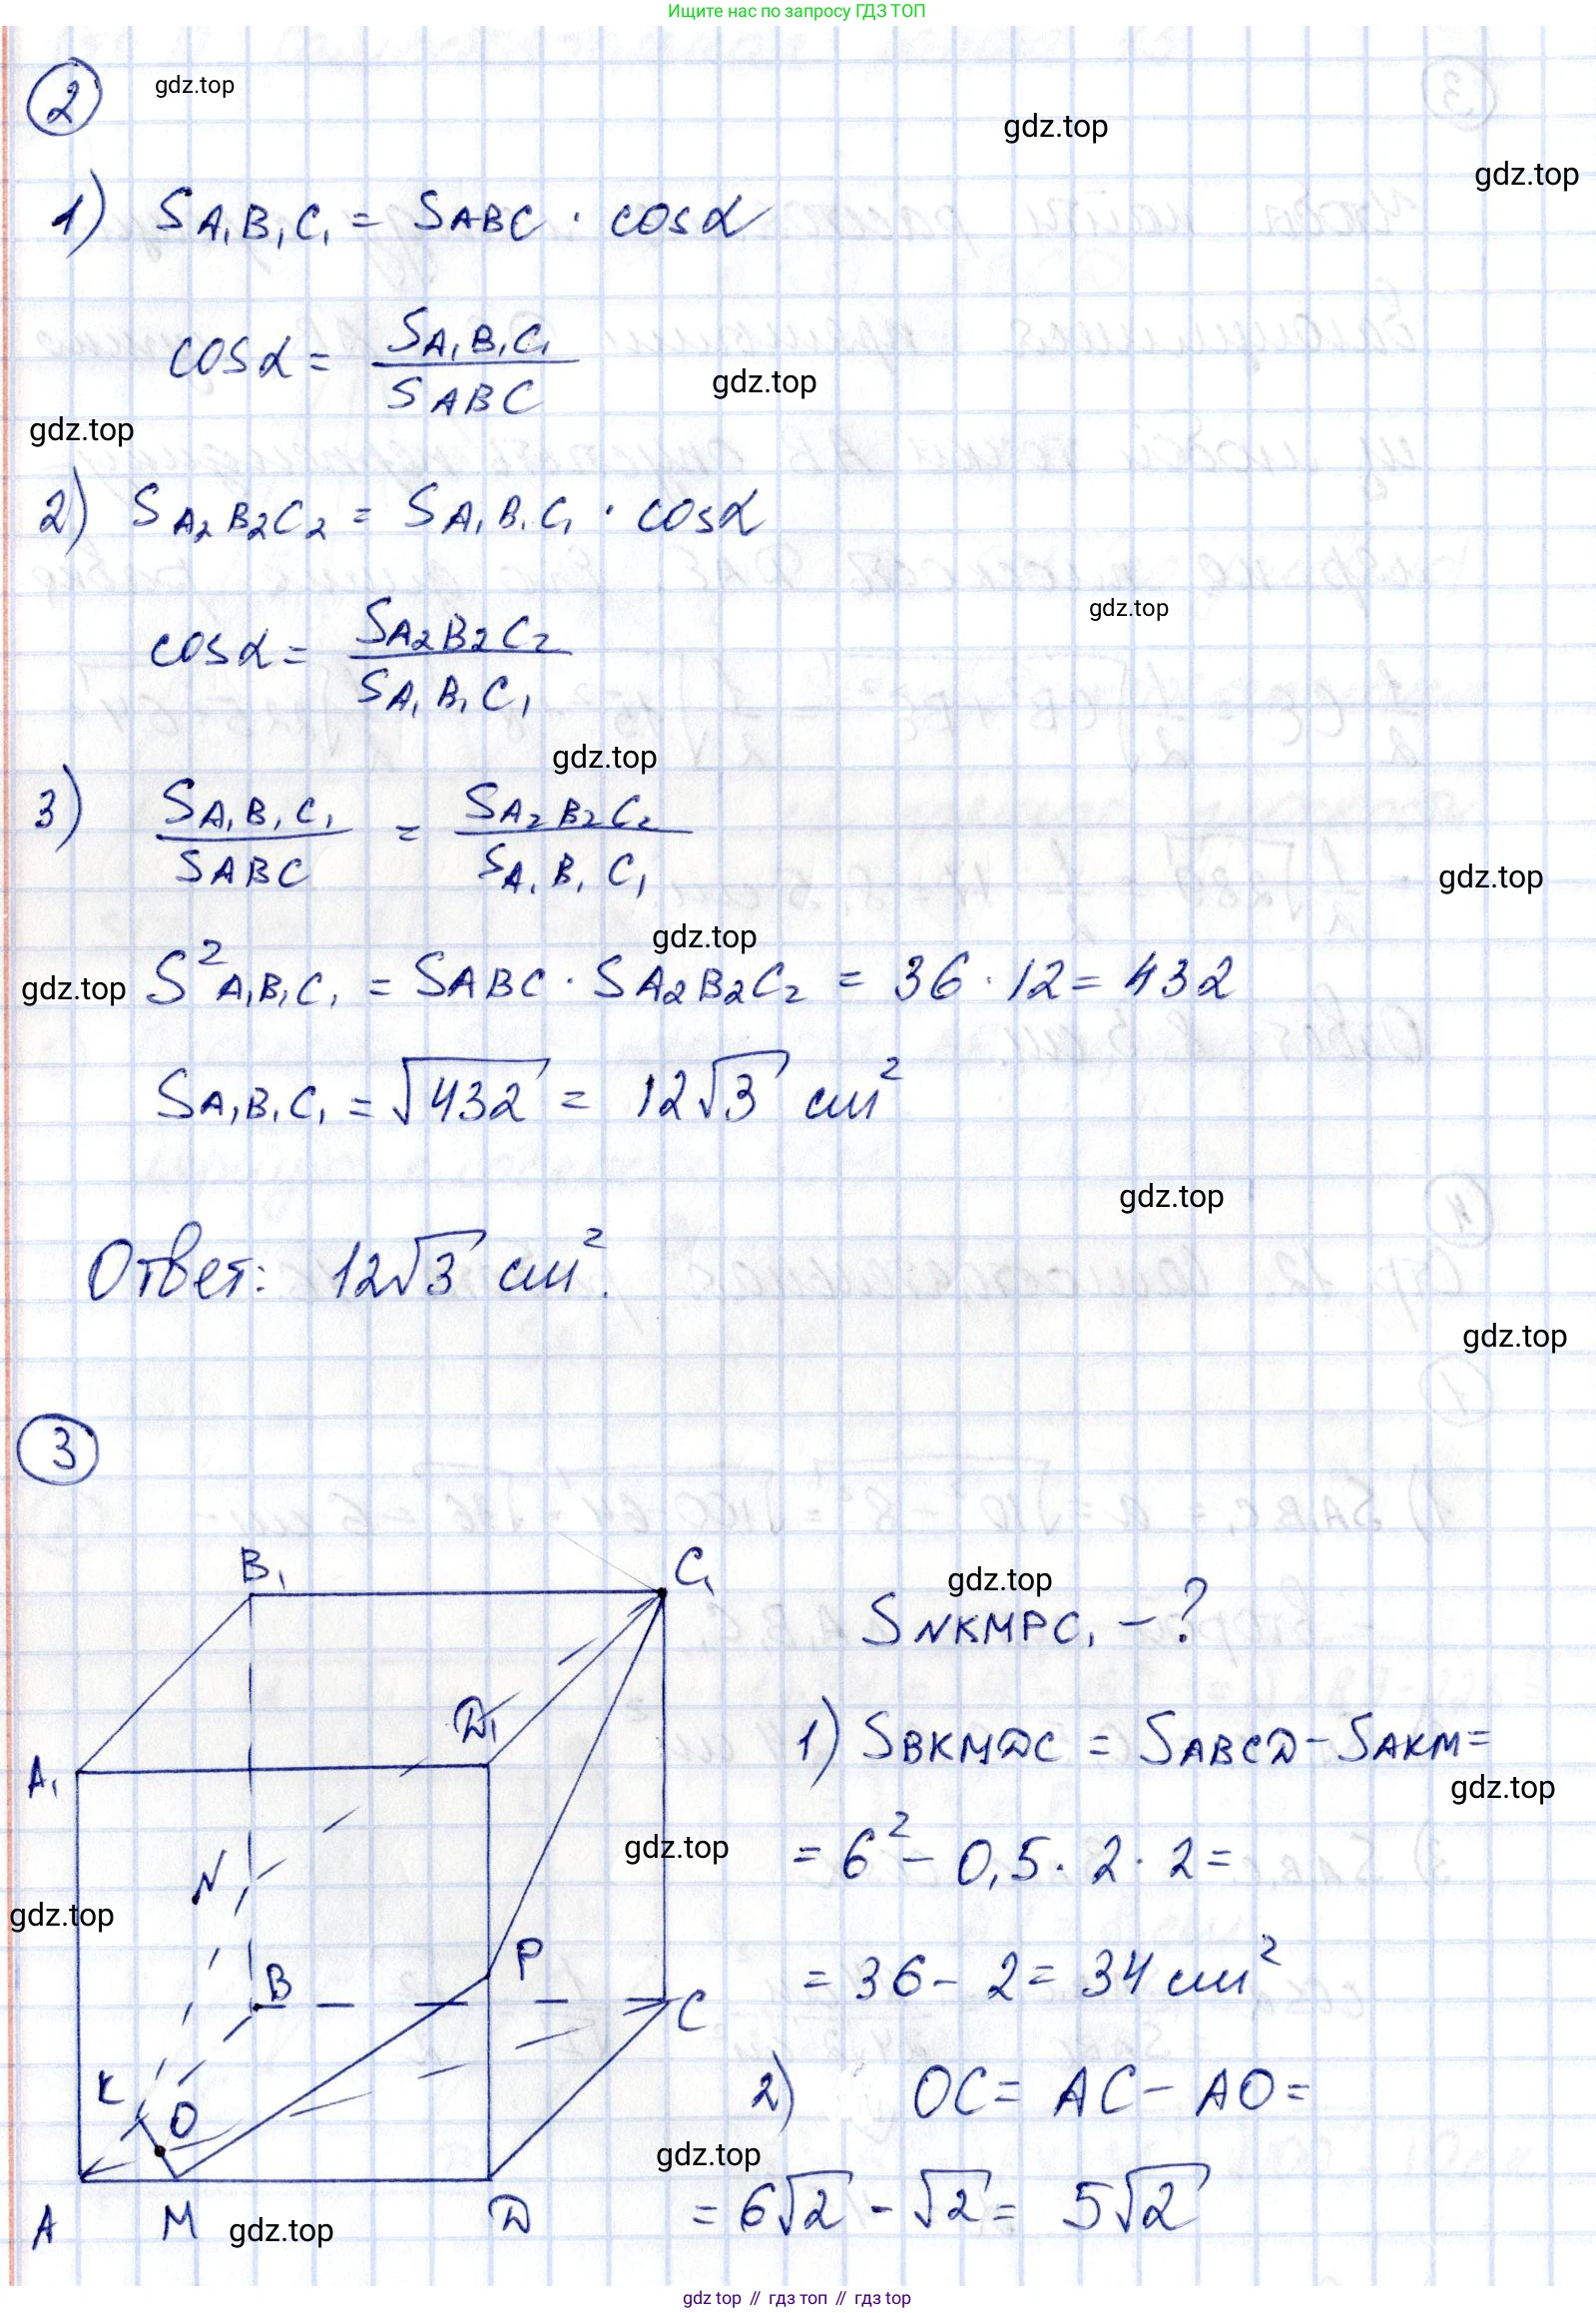 Ищите нас по запросу ГДЗ ТОП
2
gdz.top
gdz.top
gdz.top
1) S A₁B₁C₁ = S ABC · cosα
cosα = S A₁B₁C₁ / S ABC
gdz.top
gdz.top
2) S A₂B₂C₂ = S A₁B₁C₁ · cosα
gdz.top
cosα = S A₂B₂C₂ / S A₁B₁C₁
gdz.top
3) S A₁B₁C₁ / S ABC = S A₂B₂C₂ / S A₁B₁C₁
gdz.top
gdz.top
gdz.top
S² A₁B₁C₁ = S ABC · S A₂B₂C₂ = 36 · 12 = 432
S A₁B₁C₁ = √432 = 12√3 см²
gdz.top
Ответ: 12√3 см².
gdz.top
3
B₁
C₁
gdz.top
S NKMPC₁ - ?
D₁
A₁
1) S BKMDC = S ABCD - S AKM =
gdz.top
gdz.top
= 6² - 0,5 · 2 · 2 =
N
gdz.top
P
B
C
= 36 - 2 = 34 см²
K
O
2) OC = AC - AO =
gdz.top
= 6√2 - √2 = 5√2
A
M
gdz.top
D
gdz top // гдз топ // гдз.top